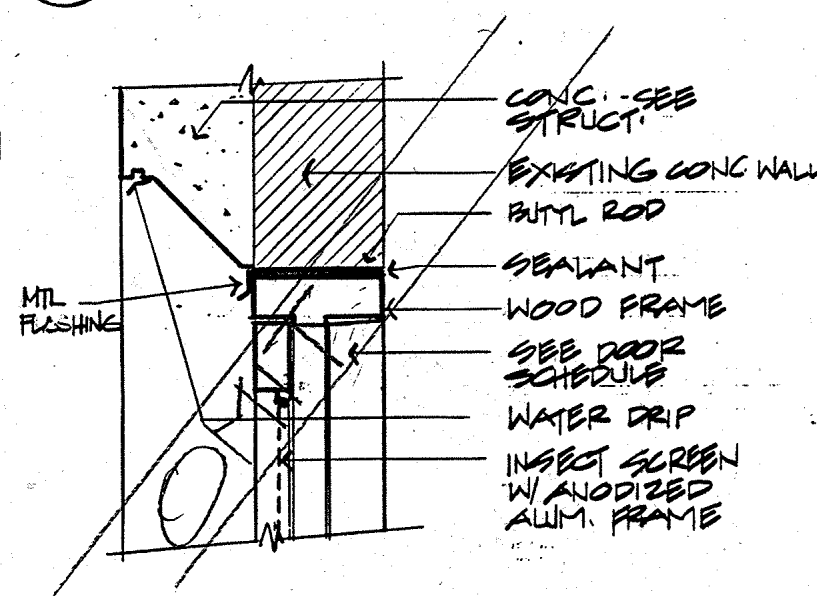 CONC. - SEE
STRUCT.
EXISTING CONC. WALL
BUTYL ROD
SEALANT
MTL
FLASHING
WOOD FRAME
SEE DOOR
SCHEDULE
WATER DRIP
INSECT SCREEN
W/ ANODIZED
ALUM. FRAME